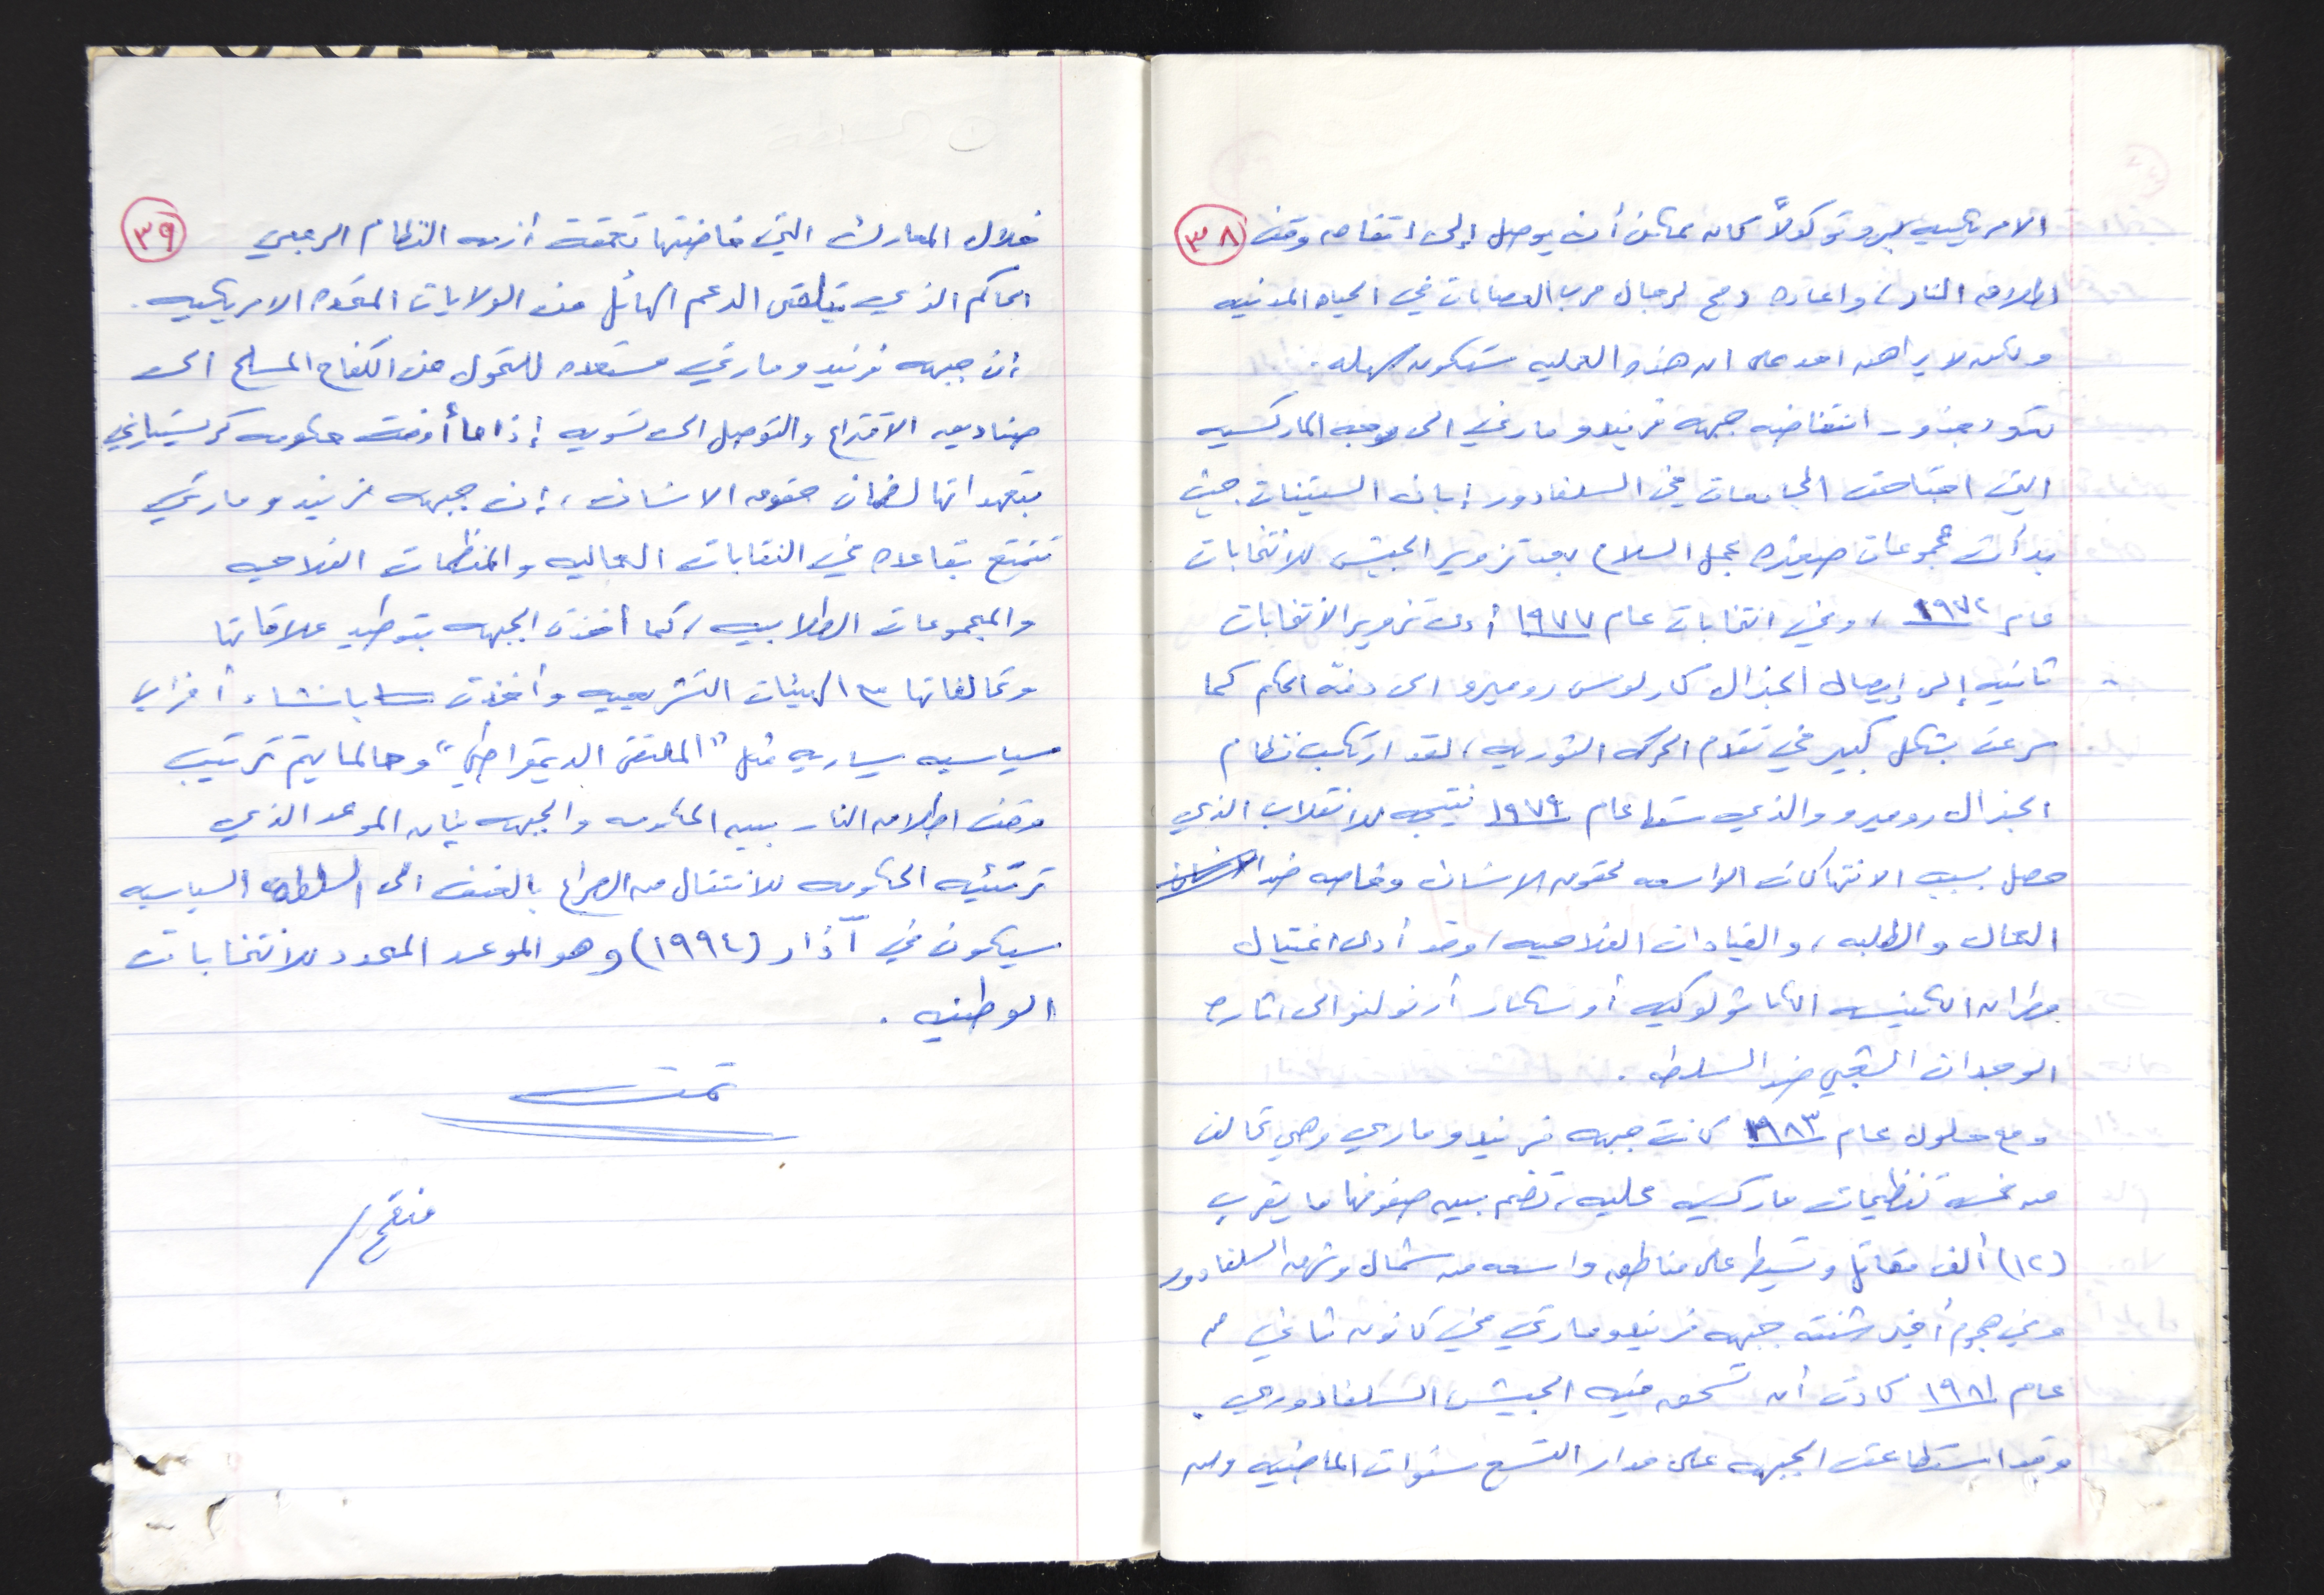 ٣٨
الامريكيه بروتوكولاً كان ممكن أن يوصل إلى اتفاق وقف
اطلاق النار، واعاده دمج لرجال حرب العصابات في الحياه المدنيه
ولكن لا يراهن احد على ان هذه العمليه ستكون سهله.
تعود جذور انتفاضه جبهه فرنيدو مارتي الى موجه الماركسيه
التي اجتاحت الجامعات في السلفادور إبان الستينات حيث
بدأت مجموعات صغيره بحمل السلاح بعد تزوير الجيش للانتخابات
عام ١٩٧٢، وفي انتخابات عام ١٩٧٧ أدى تزوير الانتخابات
ثانيه إلى إيصال الجنرال كارلوس روميرو الى دفة الحكم كما
سرعت بشكل كبير في تقدم الحركه الثوريه، لقد ارتكب نظام
الجنرال روميرو والذي سقط عام ١٩٧٩ نتيجه للانقلاب الذي
حصل بسبب الانتهاكات الواسعه لحقوق الانسان وخاصه ضد
العمال والطلبه، والقيادات الفلاحيه، وقد أدى اغتيال
مطران الكنيسه الكاثولوكيه أوسكار أرنولنو الى اثاره
الوجدان الشعبي ضد السلطه.
ومع حلول عام ١٩٨٣ كانت جبهه فرنيدو مارتي وهي تحالف
من خمسة تنظيمات ماركسيه محليه، تضم بين صفوفها ما يقرب
(١٢) ألف مقاتل وتسيطر على مناطق واسعه من شمال وشرق السلفادور
وفي هجوم أخير شنته جبهه فرنيدو مارتي في كانون ثاني من
عام ١٩٨١ كادت أن تسحق فيه الجيش السلفادوري.
وقد استطاعت الجبهه على مدار التسع سنوات الماضيه ومن
٣٩
خلال المعارك التي خاضتها تعمقت أزمه النظام الرجعي
الحاكم الذي يتلقى الدعم الهائل من الولايات المتحده الامريكيه.
ان جبهه فرنيدو مارتي مستعده للتحول من الكفاح المسلح الى
صناديق الاقتراع والتوصل الى تسويه إذا ما أوفت حكومه كريستياني
بتعهداتها لضمان حقوق الانسان، إن جبهه فرنيدو مارتي
تتمتع بقاعده في النقابات العماليه والمنظمات الفلاحيه
والمجموعات الطلابيه، كما أخذت الجبهه بتوطيد علاقاتها
وتحالفاتها مع الهيئات التشريعيه وأخذت بانشاء أحزاب
سياسيه يساريه مثل "الملتقى الديمقراطي" وحالما يتم ترتيب
وقف اطلاق النار بين الحكومه والجبهه فإن الموعد الذي
ترتئيه الحكومه للانتقال من الصراع بالعنف الى السلطه السياسيه
سيكون في آذار (١٩٩٤) وهو الموعد المحدد للانتخابات
الوطنيه.
تمت
منقح/